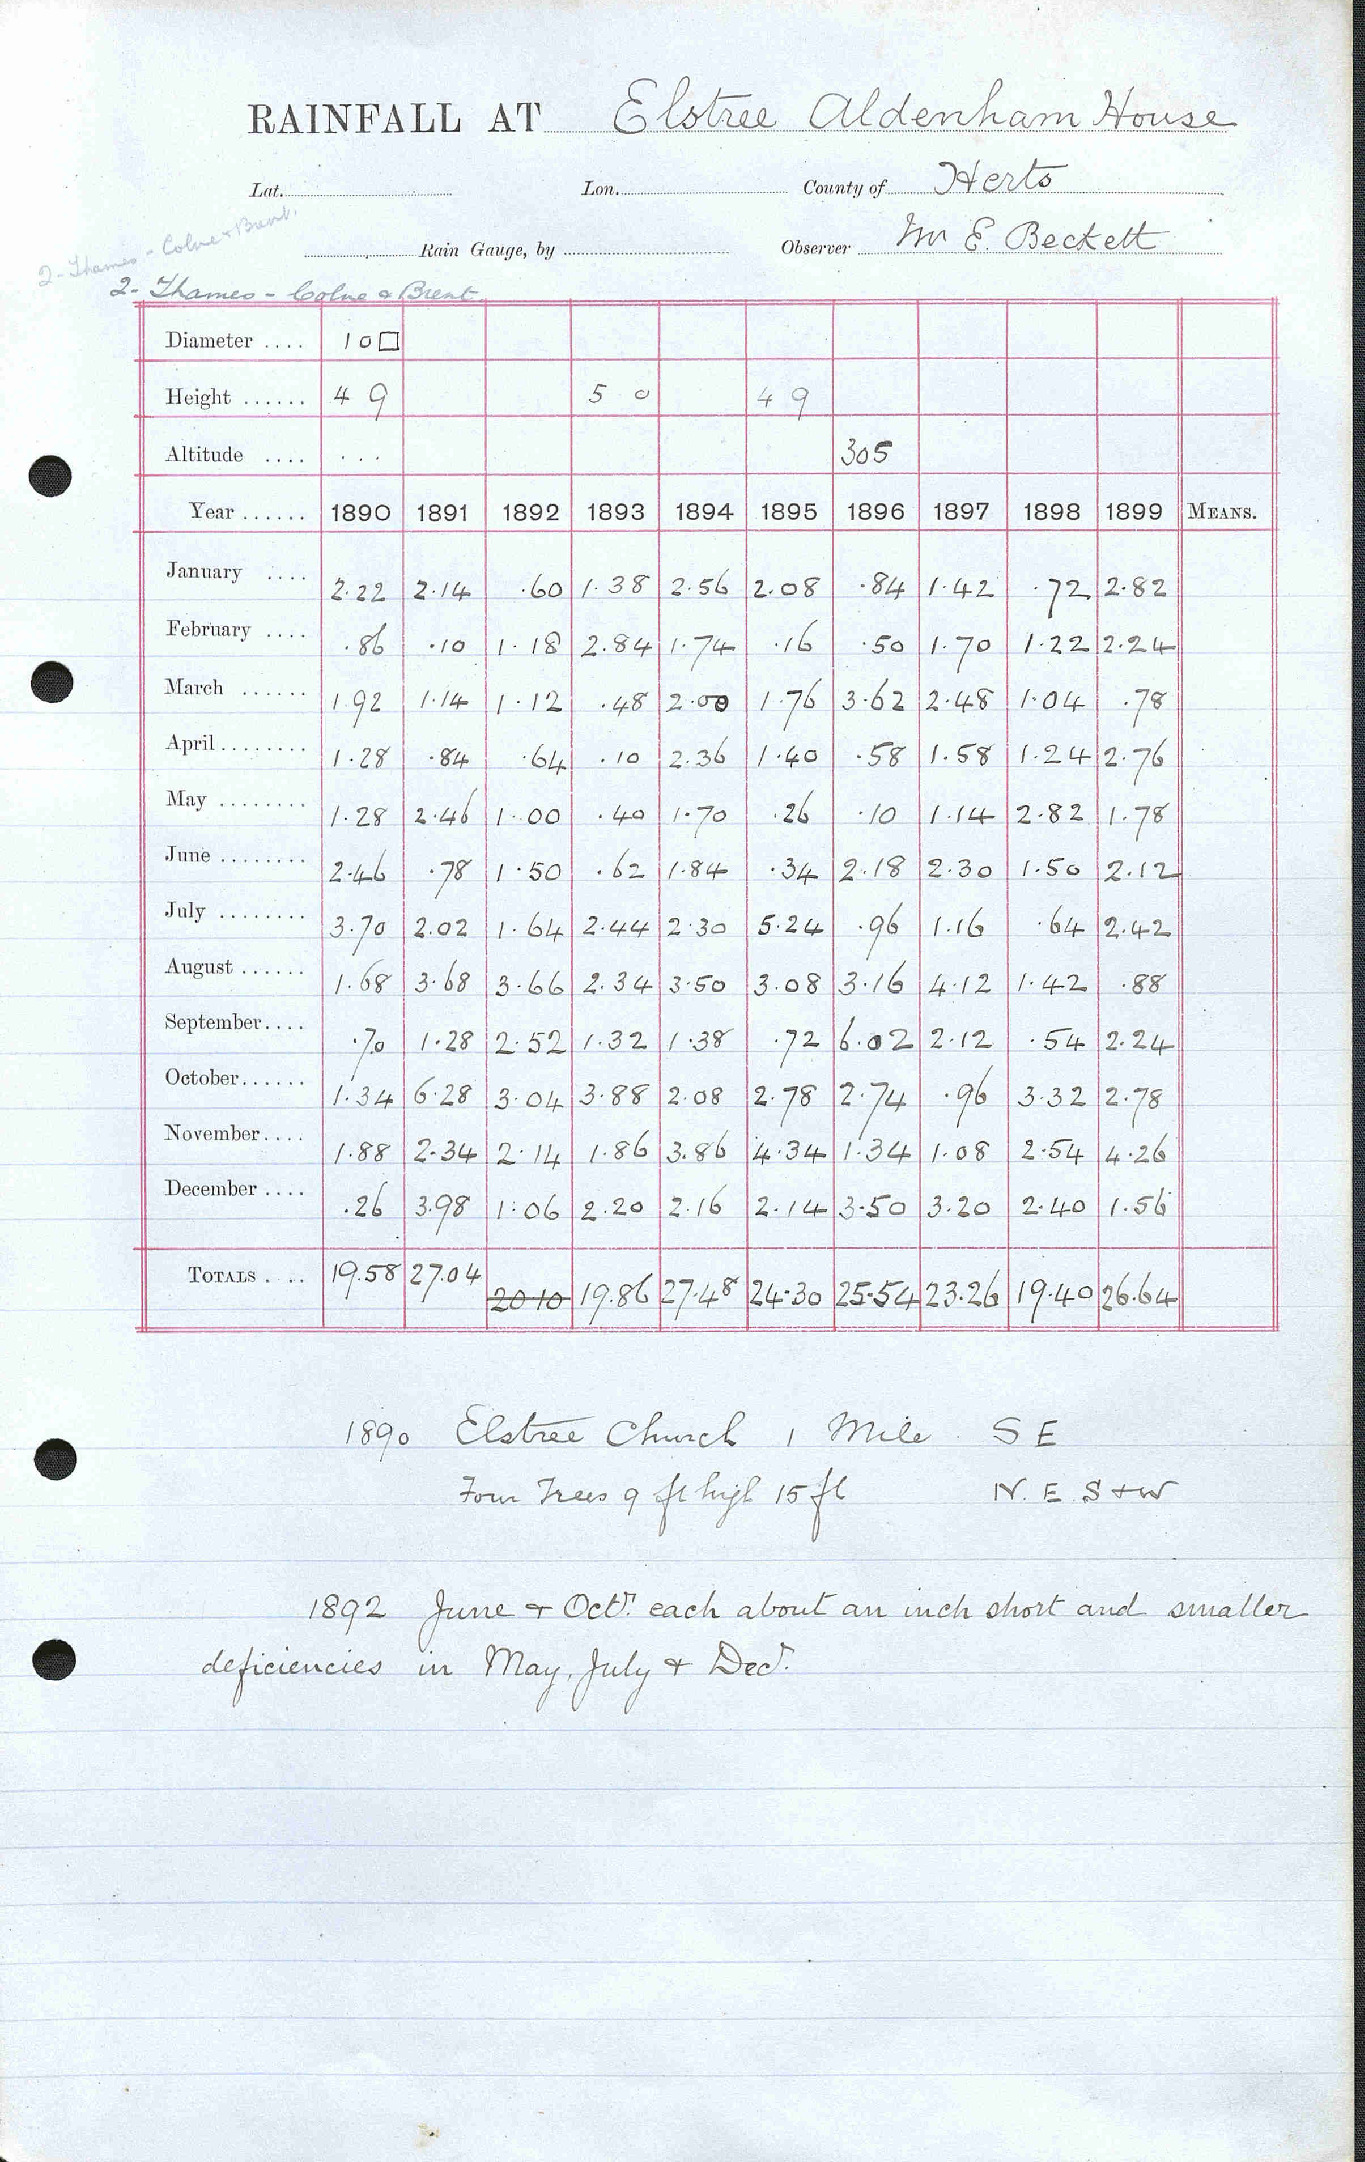 RAINFALL AT Elstree Aldenham House
Lat. Lon. County of Herts
2 - Thames - Colne & Brent.
Rain Gauge, by Observer Mr E. Beckett
2 - Thames - Colne & Brent
Diameter .... 10□
Height ...... 4 9 5 0 4 9
Altitude .... ... 305
Year ...... 1890 1891 1892 1893 1894 1895 1896 1897 1898 1899 MEANS.
January .... 2.22 2.14 .60 1.38 2.56 2.08 .84 1.42 .72 2.82
February .... .86 .10 1.18 2.84 1.74 .16 .50 1.70 1.22 2.24
March ...... 1.92 1.14 1.12 .48 2.00 1.76 3.62 2.48 1.04 .78
April ........ 1.28 .84 .64 .10 2.36 1.40 .58 1.58 1.24 2.76
May ........ 1.28 2.46 1.00 .40 1.70 .26 .10 1.14 2.82 1.78
June ........ 2.46 .78 1.50 .62 1.84 .34 2.18 2.30 1.50 2.12
July ........ 3.70 2.02 1.64 2.44 2.30 5.24 .96 1.16 .64 2.42
August ...... 1.68 3.68 3.66 2.34 3.50 3.08 3.16 4.12 1.42 .88
September.... .70 1.28 2.52 1.32 1.38 .72 6.02 2.12 .54 2.24
October...... 1.34 6.28 3.04 3.88 2.08 2.78 2.74 .96 3.32 2.78
November.... 1.88 2.34 2.14 1.86 3.86 4.34 1.34 1.08 2.54 4.26
December .... .26 3.98 1.06 2.20 2.16 2.14 3.50 3.20 2.40 1.56
TOTALS .... 19.58 27.04 20.10 19.86 27.48 24.30 25.54 23.26 19.40 26.64
1890 Elstree Church 1 Mile S E
Four Trees 9 ft high 15 ft N. E. S + W
1892 June + Octr. each about an inch short and smaller
deficiencies in May, July + Decr.